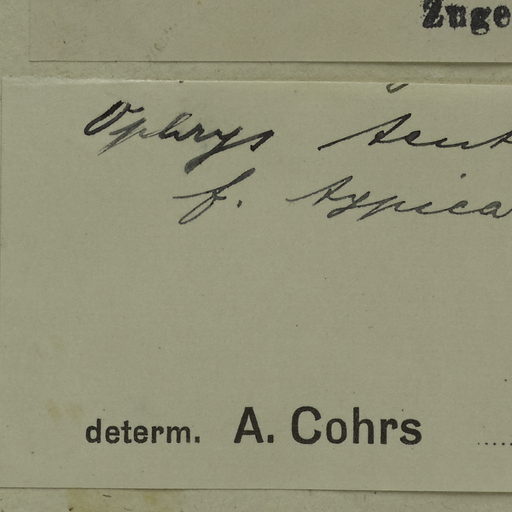 Zuge
Ophrys tent
f. typica
determ. A. Cohrs